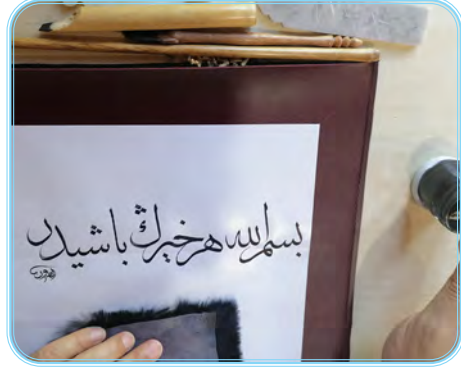 بسم الله هر خيرڭ باشيدر